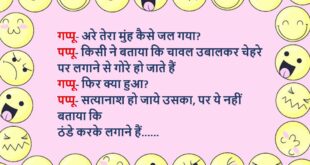 गप्पू- अरे तेरा मुंह कैसे जल गया?
पप्पू- किसी ने बताया कि चावल उबालकर चेहरे
पर लगाने से गोरे हो जाते हैं
गप्पू- फिर क्या हुआ?
पप्पू- सत्यानाश हो जाये उसका, पर ये नहीं
बताया कि
ठंडे करके लगाने हैं......